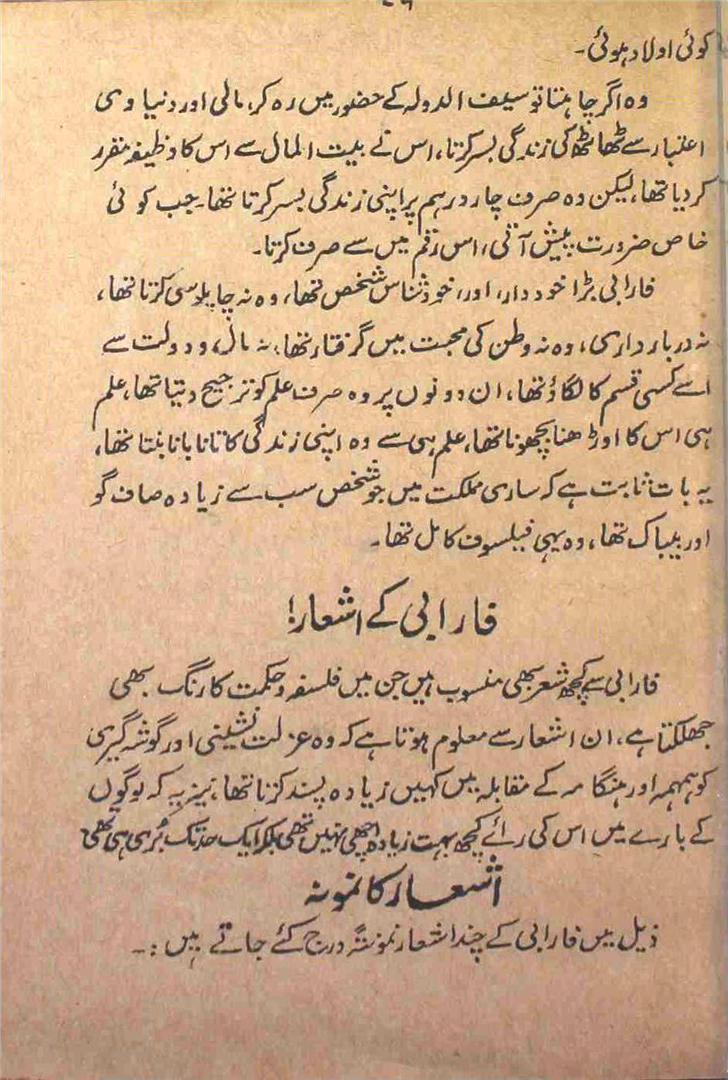 کوئی اولاد ہوئی۔
وہ اگر چاہتا تو سیف الدولہ کے حضور میں رہ کر، مالی اور دنیاوی
اعتبار سے ٹھاٹھ کی زندگی بسر کرتا، اس نے بیت المال سے اس کا وظیفہ مقرر
کر دیا تھا، لیکن وہ صرف چار درہم پر اپنی زندگی بسر کرتا تھا۔ جب کوئی
خاص ضرورت پیش آتی، اس رقم میں سے صرف کرتا۔
فارابی بڑا خود دار، اور، خود شناس شخص تھا، وہ نہ چاپلوسی کرتا تھا،
نہ دربار داری، وہ نہ وطن کی محبت میں گرفتار تھا، نہ مال و دولت سے
اسے کسی قسم کا لگاؤ تھا، ان دونوں پر وہ صرف علم کو ترجیح دیتا تھا، علم
ہی اس کا اوڑھنا بچھونا تھا، علم ہی سے وہ اپنی زندگی کا تانا بانا بنتا تھا،
یہ بات ثابت ہے کہ ساری مملکت میں جو شخص سب سے زیادہ صاف گو
اور بیباک تھا، وہ یہی فیلسوف کامل تھا۔
فارابی کے اشعار!
فارابی سے کچھ شعر بھی منسوب ہیں جن میں فلسفہ و حکمت کا رنگ بھی
جھلکتا ہے، ان اشعار سے معلوم ہوتا ہے کہ وہ عزلت نشینی اور گوشہ گیری
کو ہمہمہ اور ہنگامہ کے مقابلہ میں کہیں زیادہ پسند کرتا تھا، نیز یہ کہ لوگوں
کے بارے میں اس کی رائے کچھ بہت زیادہ اچھی نہیں تھی بلکہ ایک حد تک بُری ہی تھی
اشعار کا نمونہ
ذیل میں فارابی کے چند اشعار نمونتہً درج کئے جاتے ہیں :۔